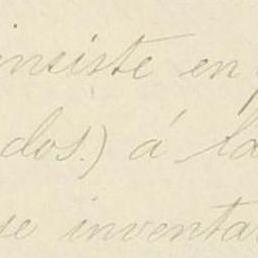 insiste en
dos.) á la
se inventa